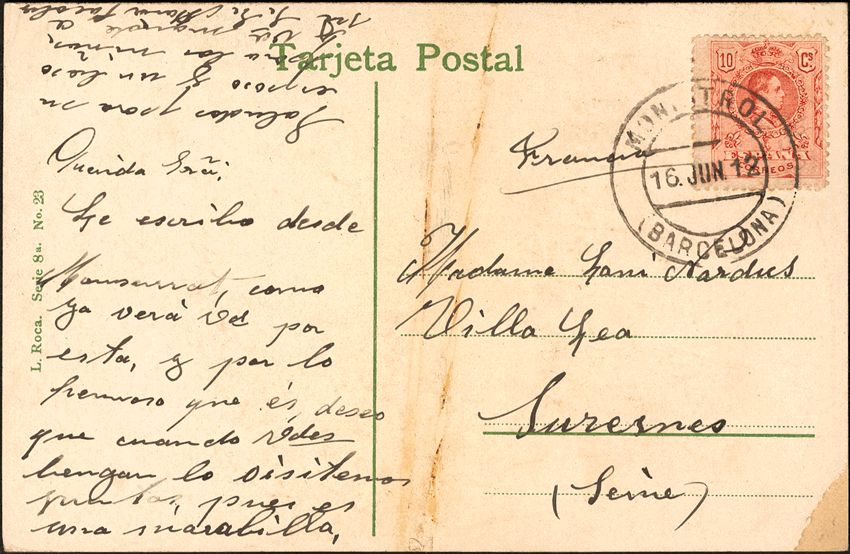 Tarjeta Postal
L. Roca. Serie 8a. No. 23
Querida
Le escribo desde
Monserrat, como
ya verá Vd por
esta, y por lo
hermoso que és, deseo
que cuando Vdes
bengan lo visitemos
juntas, pues es
una marabilla,
Saludos para su
esposo y un beso
para las niñas,
10 Cs
CORREOS
MONISTROL
16. JUN 12
(BARCELONA)
Francia
Madame Nardus
Villa Lea
Suresnes
(Seine)